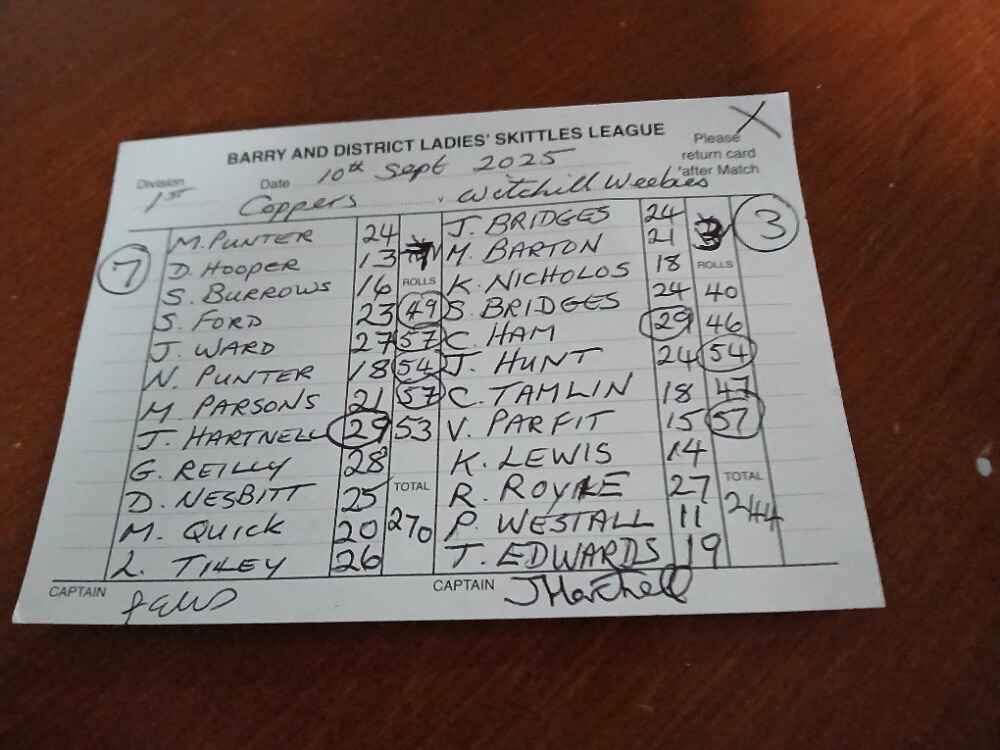 BARRY AND DISTRICT LADIES' SKITTLES LEAGUE
X
Please return card after Match
Division 1ST Date 10th Sept 2025
Coppers . Witchill Weebies
7 3
M. PUNTER 24 J. BRIDGES 24
D. HOOPER 13 M. BARTON 21
S. BURROWS 16 ROLLS K. NICHOLOS 18 ROLLS
S. FORD 23 49 S. BRIDGES 24 40
J. WARD 27 57 C. HAM 29 46
N. PUNTER 18 54 J. HUNT 24 54
M PARSONS 21 57 C. TAMLIN 18 47
J. HARTNELL 29 53 V. PARFIT 15 57
G. REILLY 28 K. LEWIS 14
D. NESBITT 25 TOTAL R. ROYLE 27 TOTAL
M. QUICK 20 270 P. WESTALL 11 244
L. TILEY 26 T. EDWARDS 19
CAPTAIN CAPTAIN JHartnell